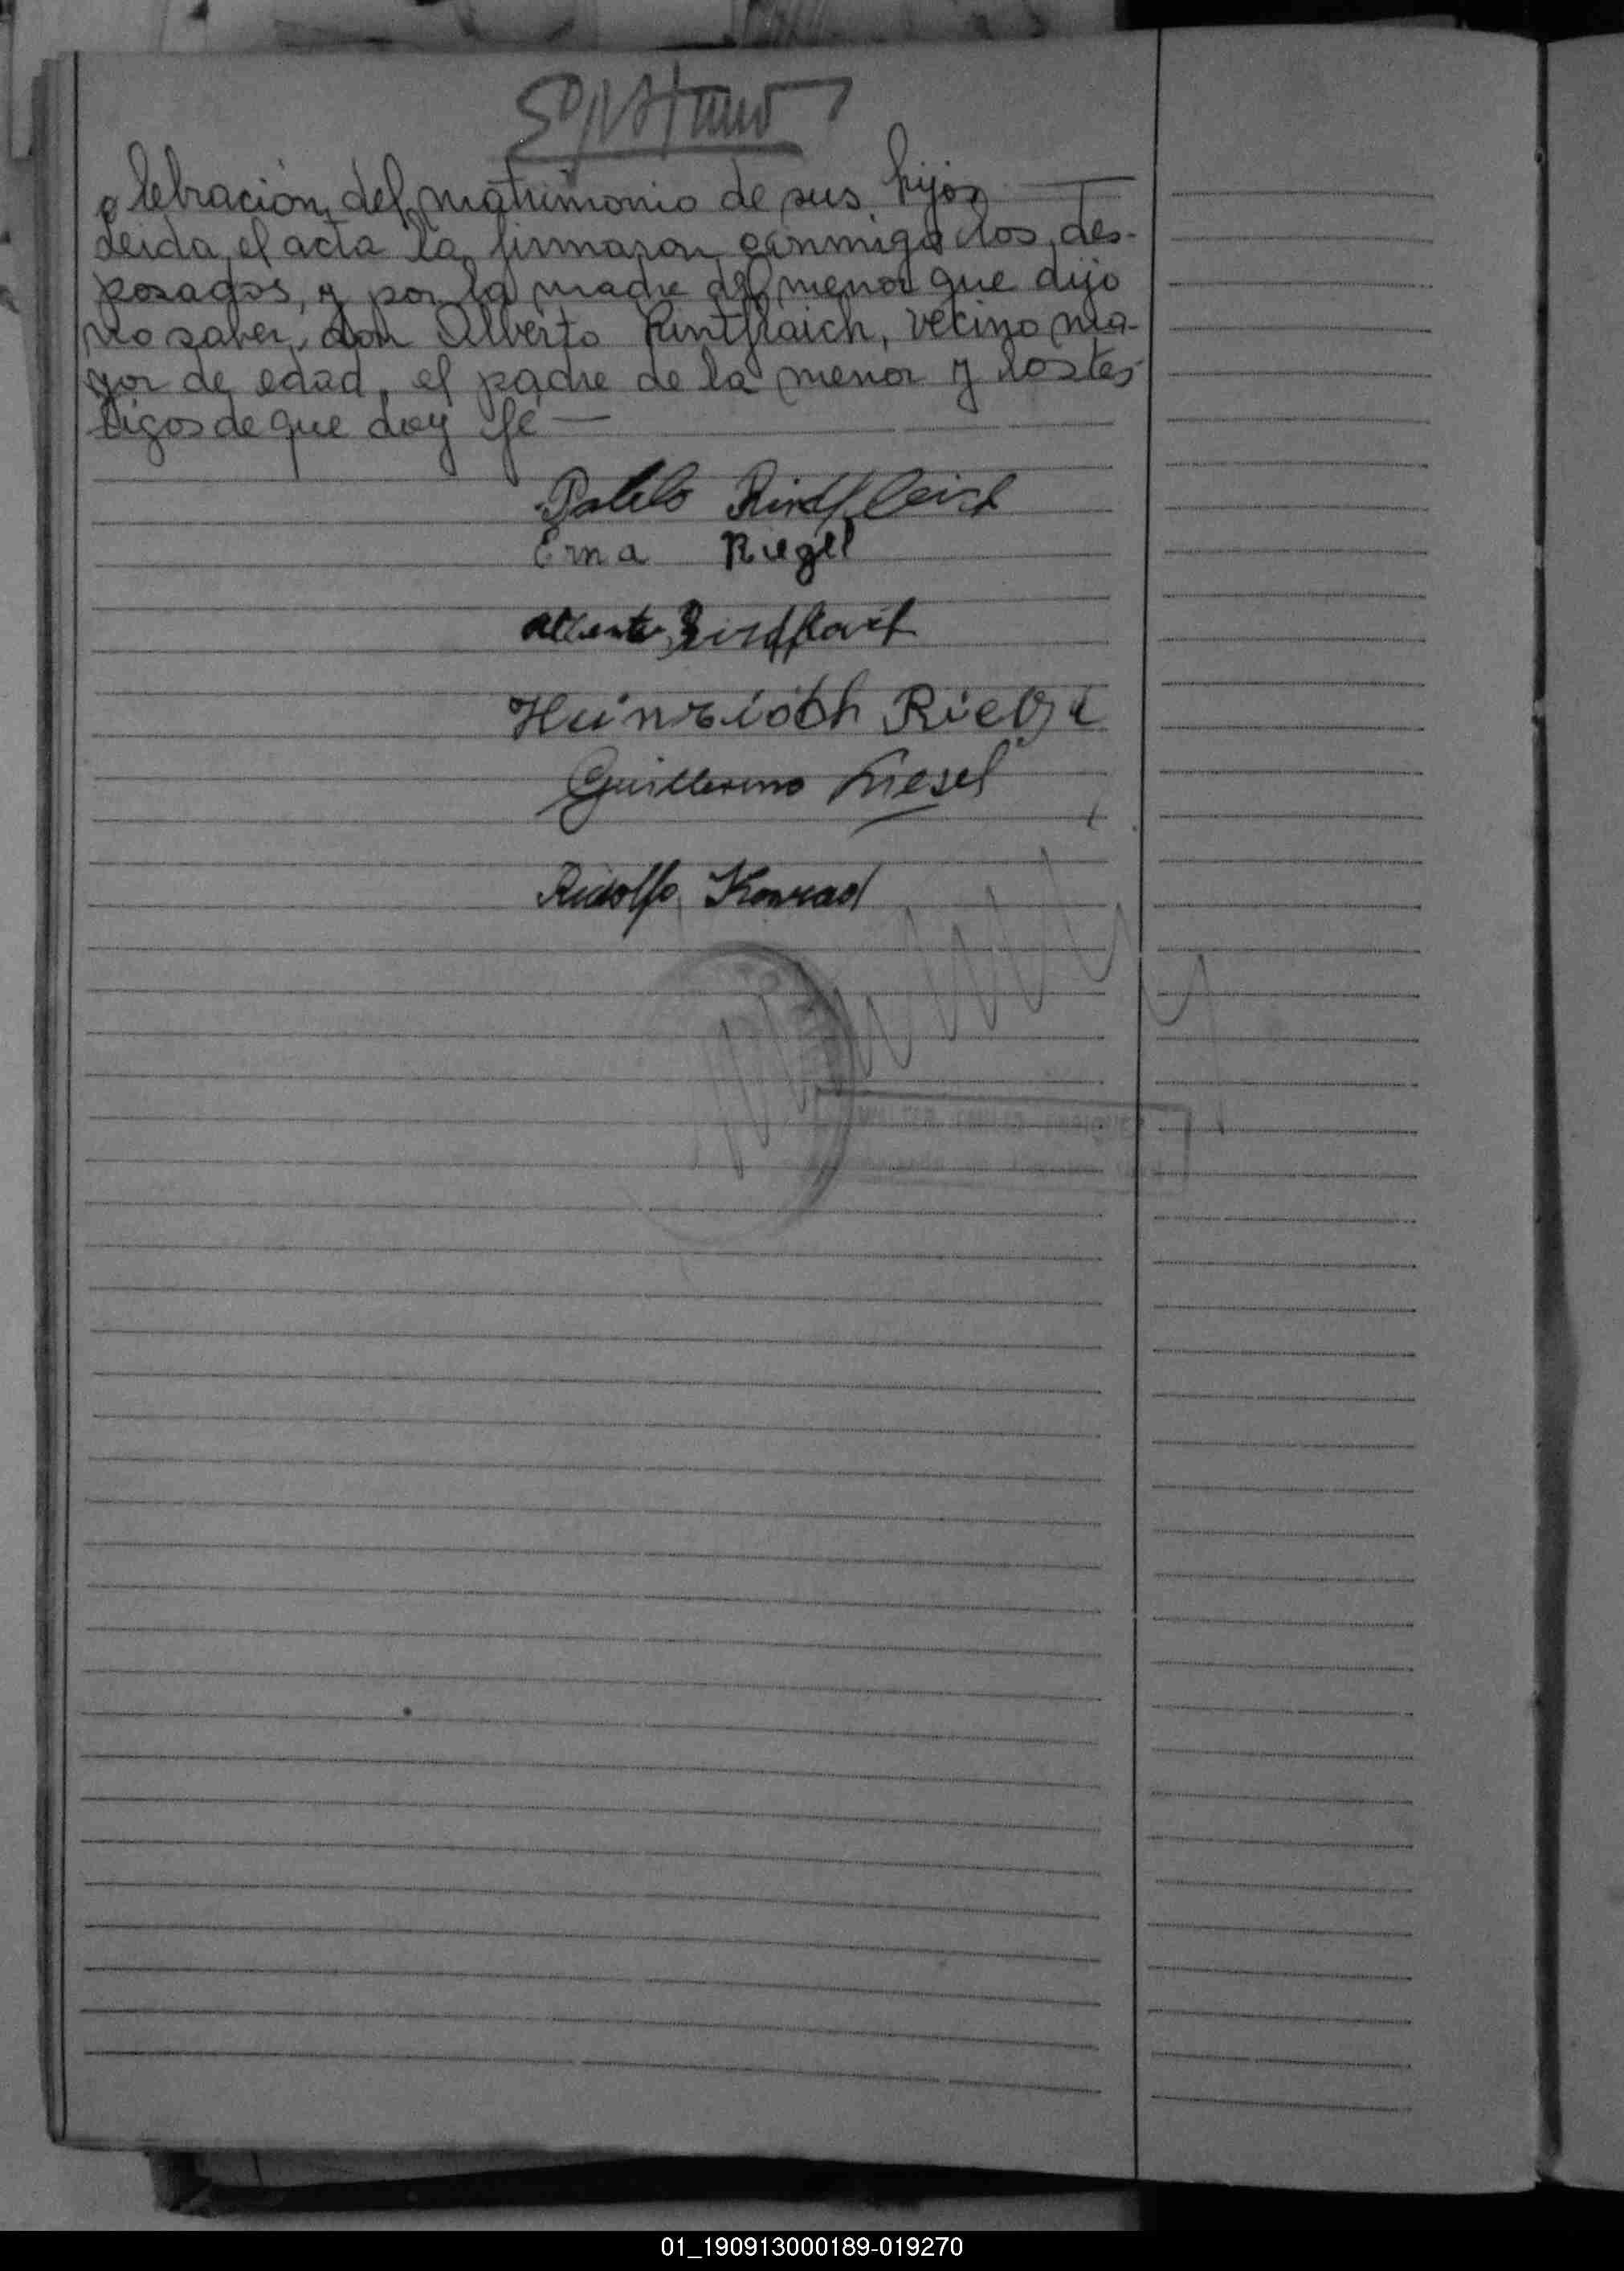 celebración del matrimonio de sus hijos —
Leida el acta la firmaron conmigo los des-
posados, y por la madre del menor que dijo
no saber, don Alberto Rintflaich, vecino ma-
yor de edad, el padre de la menor y los tes-
tigos de que doy fé —
Pablo Rindfleisch
Erna Riegel
Alberto
Heinrich Riegel
Guillermo
Rudolfo Konrad
01_190913000189-019270